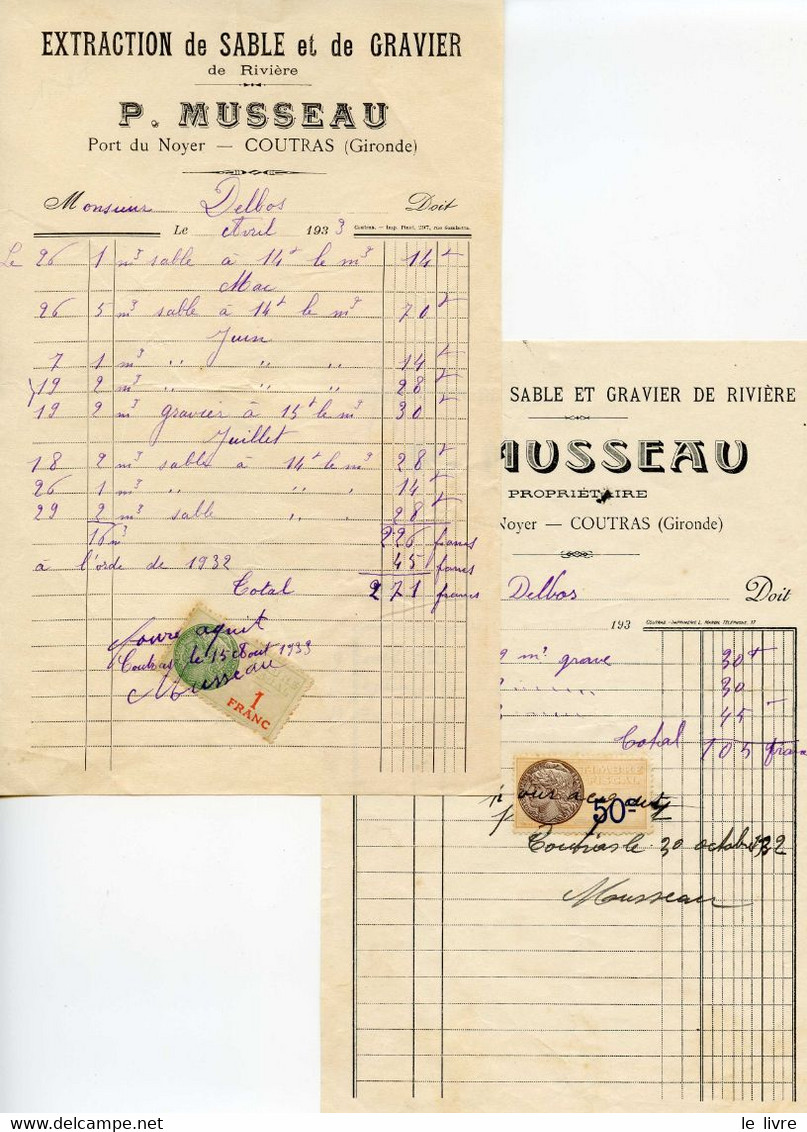 EXTRACTION de SABLE et de GRAVIER
de Rivière
P. MUSSEAU
Port du Noyer — COUTRAS (Gironde)
Monsieur Delbos Doit
Le Avril 1933 Coutras. - Imp. Pinet, 207, rue Gambetta.
Le 26 1 m³ sable à 14f le m³ 14f
Mai
26 5 m³ sable à 14f le m³ 70f
Juin
7 1 m³ " " " 14f
19 2 m³ " " " 28f
19 2 m³ gravier à 15f le m³ 30f
Juillet
18 2 m³ sable à 14f le m³ 28f
26 1 m³ " " " 14f
29 2 m³ sable " " 28f
16 m³ 226 francs
à l'orde de 1932 45 francs
Total 271 francs
Pour aquit
Coutras le 15 Aout 1933
Musseau
1
FRANC
SABLE ET GRAVIER DE RIVIÈRE
MUSSEAU
PROPRIÉTAIRE
Noyer — COUTRAS (Gironde)
Delbos Doit
193
2 m³ grave 30f
30
45
Total 105 francs
pour acquit
50c
Coutras le 30 octobre 1932
Musseau
Delcampe.net
le livre